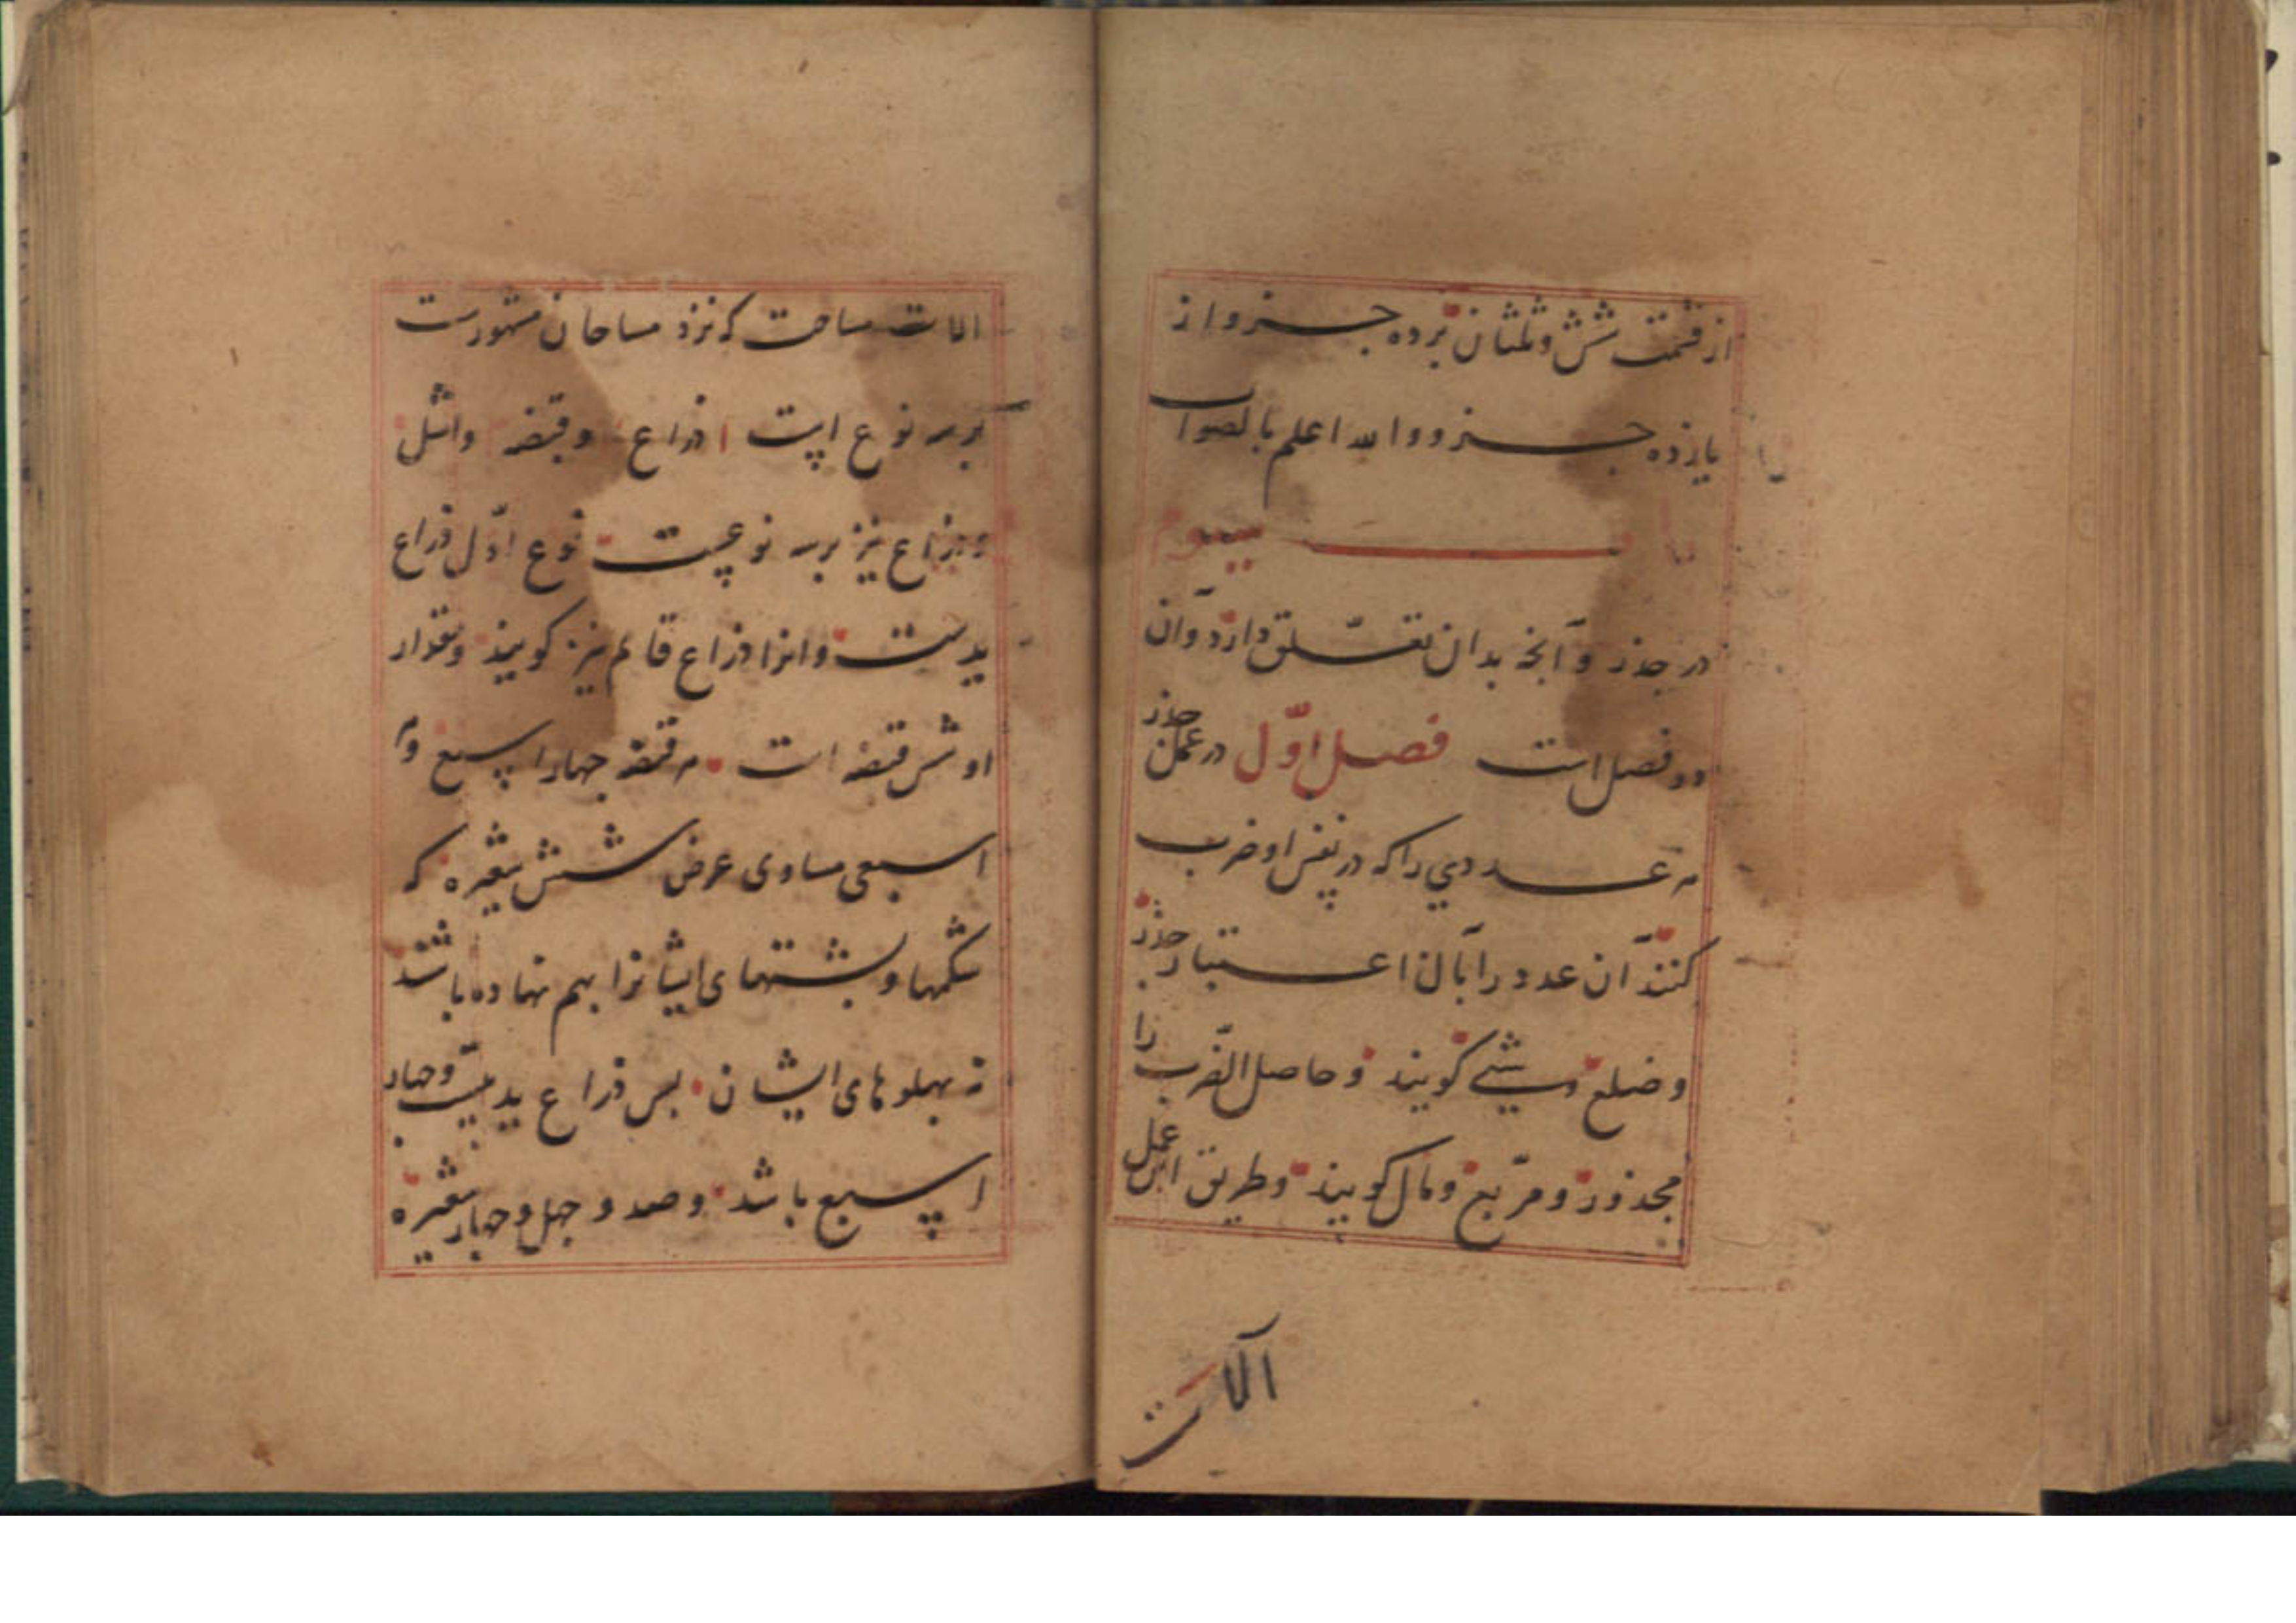 از قسمت شش و ثلثان بر ده جزو از
یازده جزو والله اعلم بالصواب
باب سیوم
در جذر و آنچه بدان تعلق دارد و آن
دو فصل است فصل اول در عمل جذر
هر عددی را که در نفس او ضرب
کنند آن عدد را بآن اعتبار جذر
و ضلع و شیء گویند و حاصل الضرب را
مجذور و مربع و مال گویند و طریق این عمل
آلات
الات مساحت که نزد مساحان مشهورست
بر سه نوع است ذراع و قبضه و اشل
و ذراع نیز بر سه نوعست نوع اول ذراع
یدست و انرا ذراع قائم نیز گویند و مقدار
او شش قبضه است هر قبضه چهار اسبع و هر
اسبعی مساوی عرض شش شعیره که
شکمها و پشتهای ایشانرا بهم نهاده باشند
نه پهلوهای ایشان پس ذراع ید بیست و چهار
اسبع باشد و صد و چهل و چهار شعیره